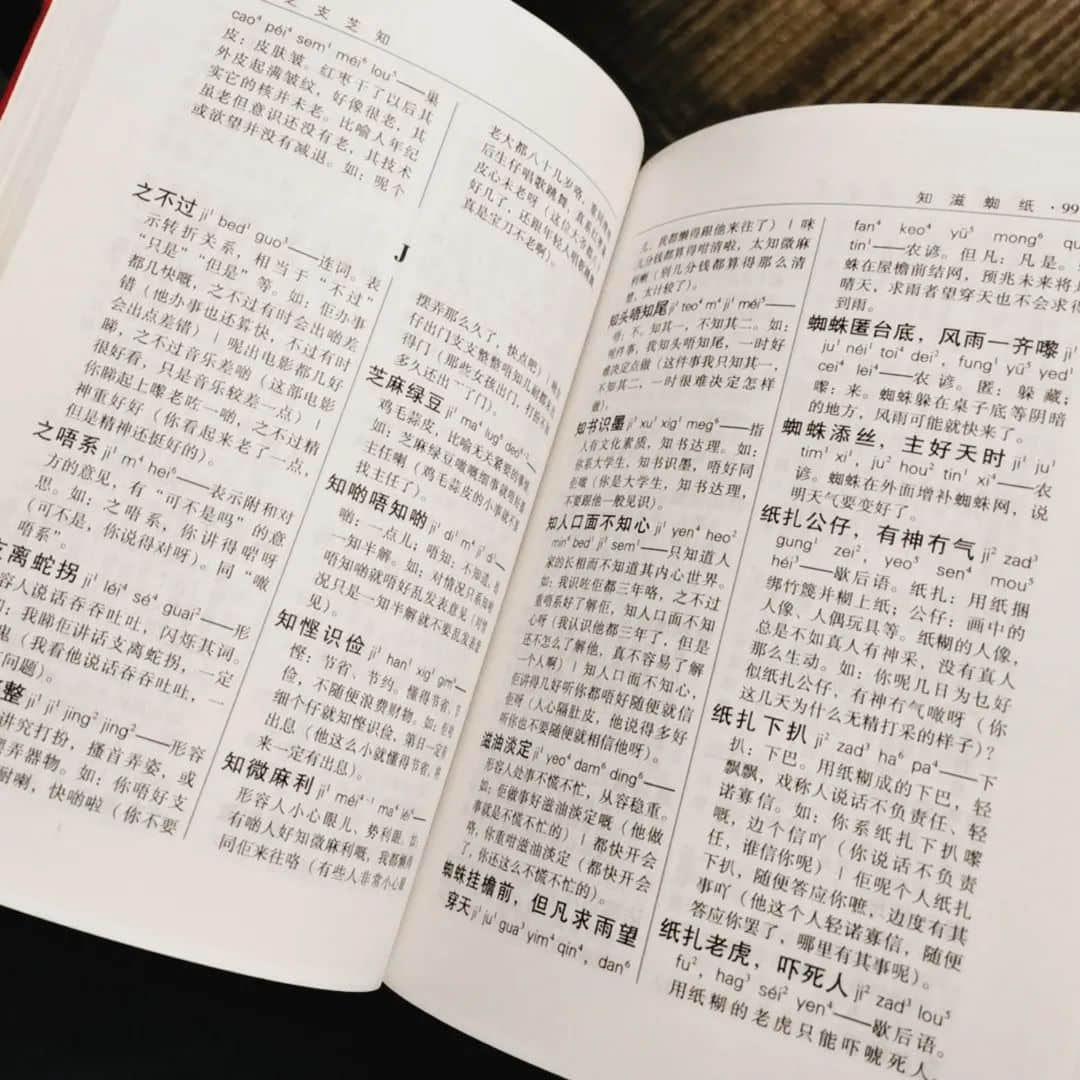 之 支 芝 知
cao⁴ péi⁴ sem¹ méi⁶ lou⁵——巢
皮：皮肤皱。红枣干了以后其
外皮起满皱纹，好像很老，其
实它的核并未老。比喻人年纪
虽老但意识还没有老，其技术
或欲望并没有减退。如：呢个
老大都八十几岁咯，重同啲
后生仔唱歌跳舞，真系红枣巢
皮心未老呀
好几了，还跟年轻人唱歌跳舞
真是宝刀不老啊）。
J
之不过 ji¹ bed¹ guo³——连词。表
示转折关系，相当于“不过”
“只是”“但是”等。如：佢办事
都几快嘅，之不过有时会出啲差
错（他办事也还算快，不过有时
会出点差错）｜呢出电影都几好
睇，之不过音乐差啲（这部电影
很好看，只是音乐较差一点）｜
你睇起上嚟老咗一啲，之不过精
神重好好（你看起来老了一点，
但是精神还挺好的）。
之唔系 ji¹ m⁴ hei⁶——表示附和对
方的意见，有“可不是吗”的意
思。如：之唔系，你讲得啱呀
（可不是，你说得对呀）。同“噉
唔系”。
支离蛇拐 ji¹ léi⁴ sé⁴ guai²——形
容人说话吞吞吐吐，闪烁其词。
如：我睇佢讲话支离蛇拐，一定
鬼（我看他说话吞吞吐吐，一
问题）。
整 ji¹ ji¹ jing² jing²——形容
讲究打扮，搔首弄姿，或
弄器物。如：你唔好支
耐喇，快啲啦（你不要
摆弄那么久了，快点吧）
仔出门支支整整唔知几耐都未出
得门（那些女孩出门，打扮不知
多久还出不了门）。
芝麻绿豆 ji¹ ma⁴ lug⁶ deo⁶⁻²——
鸡毛蒜皮，比喻无关紧要的事情。
如：芝麻绿豆嘅嘢细事就唔好
主任喇（鸡毛蒜皮的小事就不要
找主任了）。
知啲唔知啲 ji¹ di¹ m⁴ ji¹ di¹——
啲：一点儿；唔知：不知道。指
一知半解。如：对情况只系知啲
唔知啲就唔好乱发表意见（对情
况只是一知半解就不要乱发表意
见）。
知悭识俭 ji¹ han¹ xig¹ gim⁶——
悭：节省、节约。懂得节省、节
俭，不随便浪费财物。如：佢
细个仔就知悭识俭，第日一定有
出息（他这么小就懂得节省，将
来一定有出息）。
知微麻利 ji¹ méi⁴⁻¹ ma⁴ léi⁶——
形容人小心眼儿、势利眼。如：
有啲人好知微麻利嘅，我都懒得
同佢来往咯（有些人非常小心眼
知 滋 蜘 纸 · 99
儿，我都懒得跟他来往了）｜咪
几分钱都算得咁清啦，太知微麻
利喇（别几分钱都算得那么清
楚，太计较了）。
知头唔知尾 ji¹ teo⁴ m⁴ ji¹ méi⁵——
不知其一，不知其二。如：
呢件事，我知头唔知尾，一时好
难决定点做（这件事我只知其一，
不知其二，一时很难决定怎样
做）。
知书识墨 ji¹ xu¹ xig¹ meg⁶——指
人有文化素质，知书达理。如：
你系大学生，知书识墨，唔好同
佢哦（你是大学生，知书达理，
不要跟他一般见识）。
知人口面不知心 ji¹ yen⁴ heo²
min⁶ bed¹ ji¹ sem¹——只知道人
家的长相而不知道其内心世界。
如：我识咗佢都三年咯，之不过
重唔系好了解佢，知人口面不知
心呀（我认识他都三年了，但是
还不怎么了解他，真不容易了解
一个人啊）｜知人口面不知心，
佢讲得几好听你都唔好随便就信
佢呀（人心隔肚皮，他说得多好
听你也不要随便就相信他呀）。
滋油淡定 ji¹ yeo⁴ dam⁶ ding⁶——
形容处事不慌不忙，从容稳重。
如：佢做事好滋油淡定嘅（他做
事就是不慌不忙的）｜都快开会
咯，你重咁滋油淡定（都快开会
了，你还这么不慌不忙的）。
蜘蛛挂檐前，但凡求雨望
穿天 ji¹ ju¹ gua³ yim⁴ qin⁴，dan⁶
fan⁴ keo⁴ yü⁵ mong⁶
tin¹——农谚。但凡：凡是。
蛛在屋檐前结网，预兆未来将是
晴天，求雨者望穿天也不会求得
到雨。
蜘蛛匿台底，风雨一齐嚟 ji¹
ju¹ néi¹ toi⁴ dei²，fung¹ yü⁵ yed¹
cei⁴ lei⁴——农谚。匿：躲藏；
嚟：来。蜘蛛躲在桌子底等阴暗
的地方，风雨可能就快来了。
蜘蛛添丝，主好天时 ji¹ ju¹
tim¹ xi¹，ju² hou² tin¹ xi⁴——农
谚。蜘蛛在外面增补蜘蛛网，说
明天气要变好了。
纸扎公仔，有神冇气 ji² zad³
gung¹ zei²，yeo⁵ sen⁴ mou⁵
héi³——歇后语。纸扎：用纸捆
绑竹篾并糊上纸；公仔：画中的
人像、人偶玩具等。纸糊的人像，
总是不如真人有神采，没有真人
那么生动。如：你呢几日为乜好
似纸扎公仔，有神冇气噉呀（你
这几天为什么无精打采的样子）？
纸扎下扒 ji² zad³ ha⁶ pa⁴——下
扒：下巴。用纸糊成的下巴，轻
飘飘，戏称人说话不负责任、轻
诺寡信。如：你系纸扎下扒嚟
嘅，边个信吖（你说话不负责
任，谁信你呢）｜佢呢个人纸扎
下扒，随便答应你嗻，边度有其
事吖（他这个人轻诺寡信，随便
答应你罢了，哪里有其事呢）。
纸扎老虎，吓死人 ji² zad³ lou⁵
fu²，hag³ séi² yen⁴——歇后语。
用纸糊的老虎只能吓唬死人，